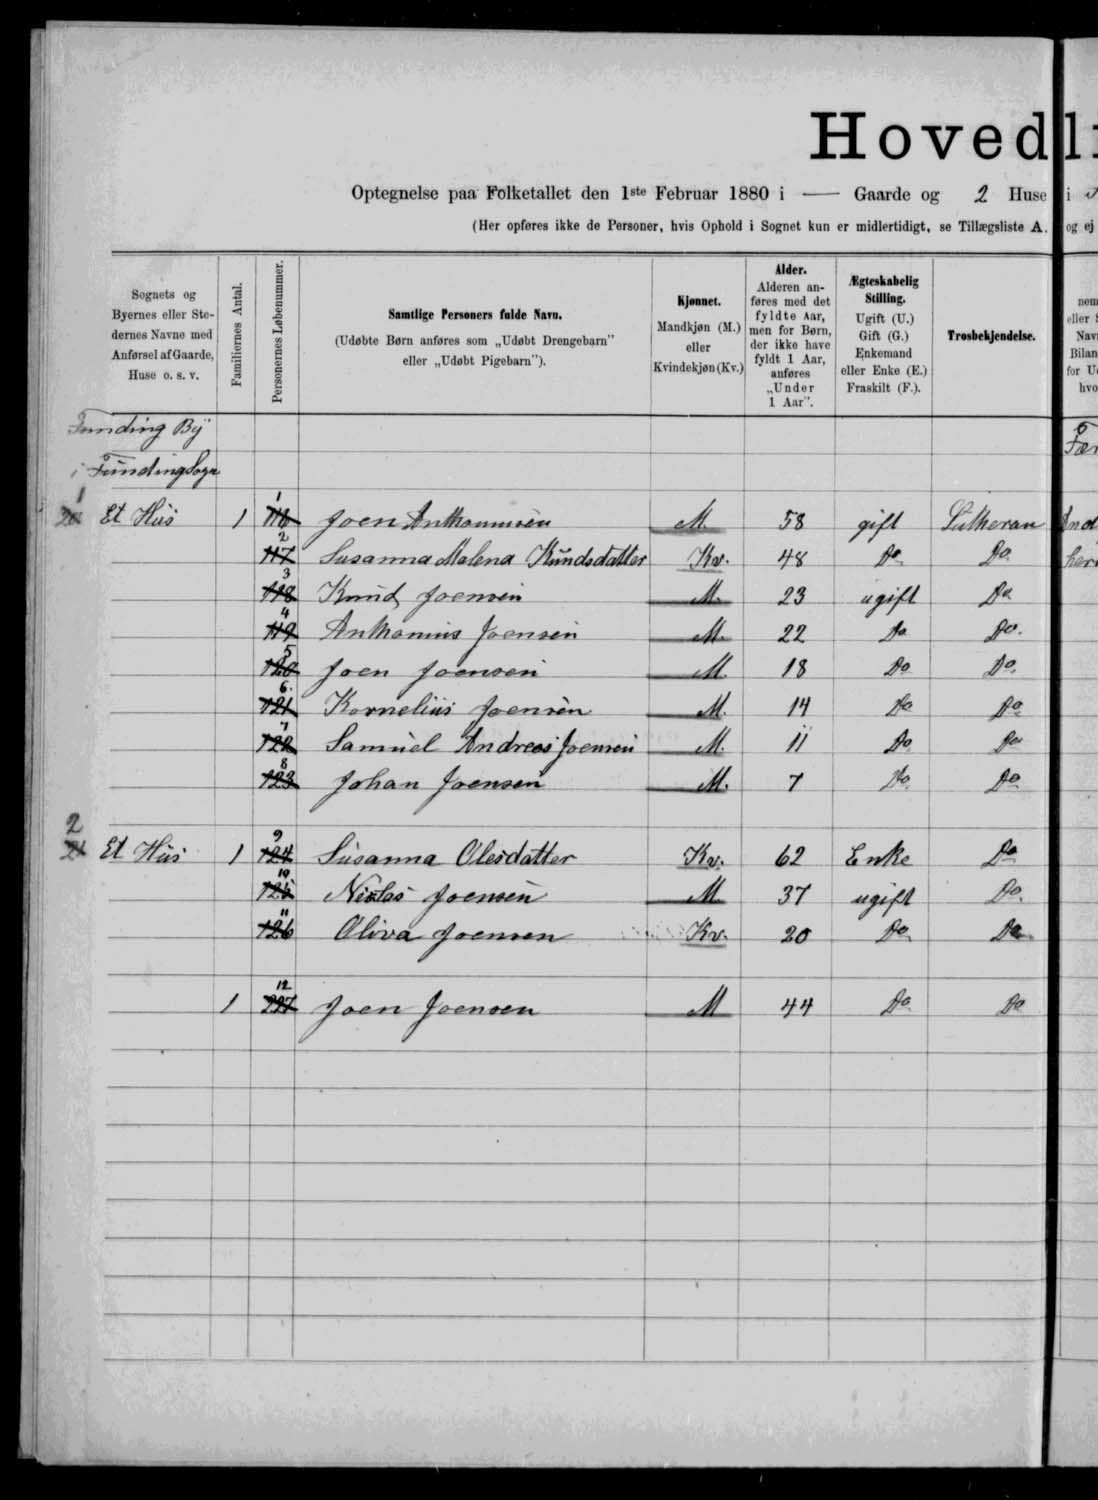 Hovedli
Optegnelse paa Folketallet den 1ste Februar 1880 i — Gaarde og 2 Huse i
(Her opføres ikke de Personer, hvis Ophold i Sognet kun er midlertidigt, se Tillægsliste A. og ej
Sognets og Byernes eller Stedernes Navne med Anførsel af Gaarde, Huse o. s. v.
Familiernes Antal.
Personernes Løbenummer.
Samtlige Personers fulde Navn.
(Udøbte Børn anføres som „Udøbt Drengebarn" eller „Udøbt Pigebarn").
Kjønnet.
Mandkjøn (M.) eller Kvindekjøn (Kv.)
Alder.
Alderen anføres med det fyldte Aar, men for Børn, der ikke have fyldt 1 Aar, anføres „Under 1 Aar".
Ægteskabelig Stilling.
Ugift (U.) Gift (G.) Enkemand eller Enke (E.) Fraskilt (F.).
Trosbekjendelse.
Funding By
i Funding Sogn
1 Et Hús 1 1 116 Joen Anthoniusen M. 58 gift Lutheran
2 117 Susanna Malena Knúdsdatter Kv. 48 Do Do
3 118 Knúd Joensen M. 23 ugift Do
4 119 Anthonius Joensen M. 22 Do Do.
5 120 Joen Joensen M. 18 Do Do.
6. 121 Kornelius Joensen M. 14 Do Do
7 122 Samúel Andreas Joensen M. 11 Do Do
8 123 Johan Joensen M. 7 Do Do
2 21 Et Hús 1 9 124 Súsanna Olesdatter Kv. 62 Enke Do
10 125 Niclas Joensen M 37 ugift Do.
11 126 Oliva Joensen Kv. 20 Do Do
1 12 127 Joen Joensen M 44 Do Do